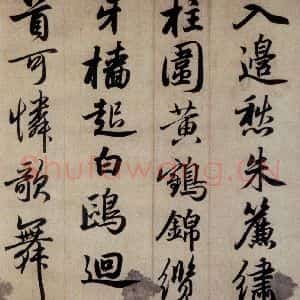 入邊愁朱簾繡
柱圍黃鶴錦纜
牙檣起白鷗迴
首可憐歌舞